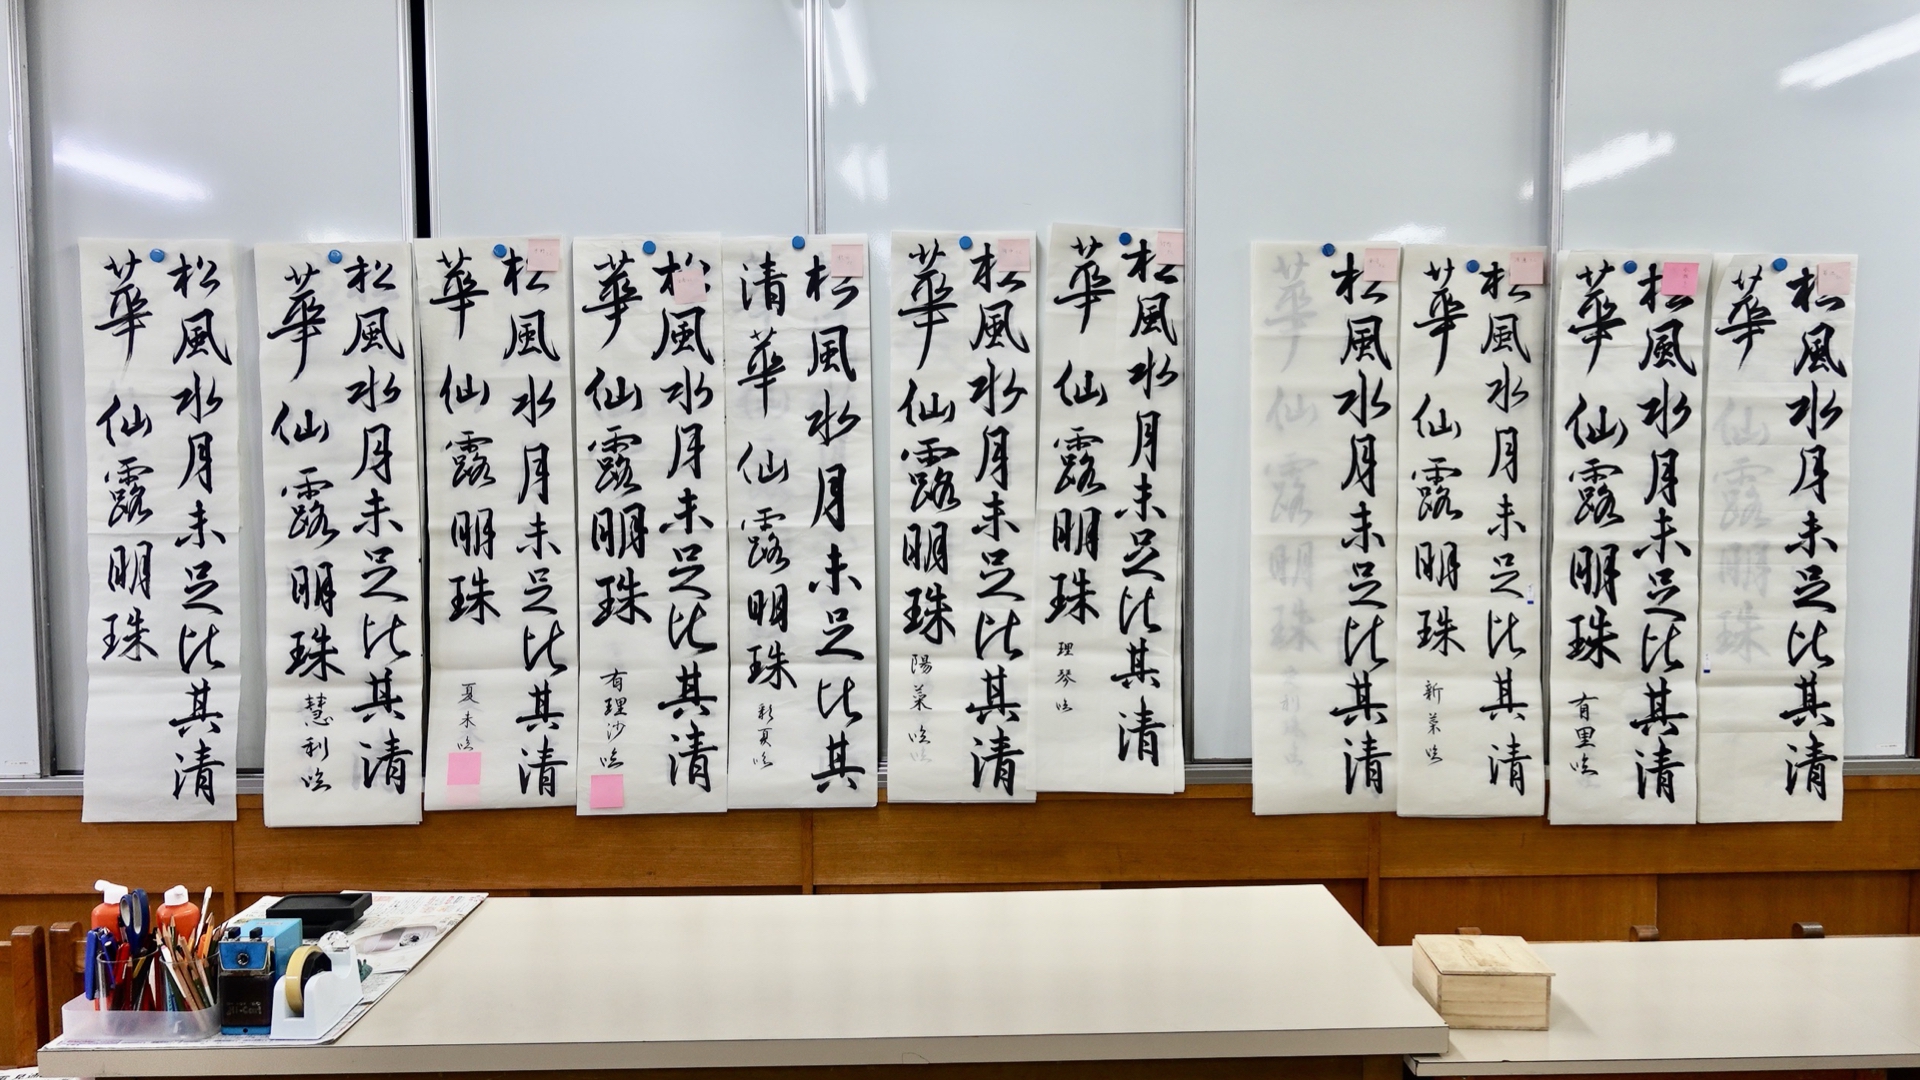 松風水月未足比其清
華仙露明珠
松風水月未足比其清
華仙露明珠
慧利臨
松風水月未足比其清
華仙露明珠
夏未臨
松風水月未足比其清
華仙露明珠
有理沙臨
松風水月未足比其
清華仙露明珠
彩夏臨
松風水月未足比其清
華仙露明珠
陽菜臨
松風水月未足比其清
華仙露明珠
理琴臨
松風水月未足比其清
華仙露明珠
松風水月未足比其清
華仙露明珠
新菜臨
松風水月未足比其清
華仙露明珠
有里臨
松風水月未足比其清
華仙露明珠